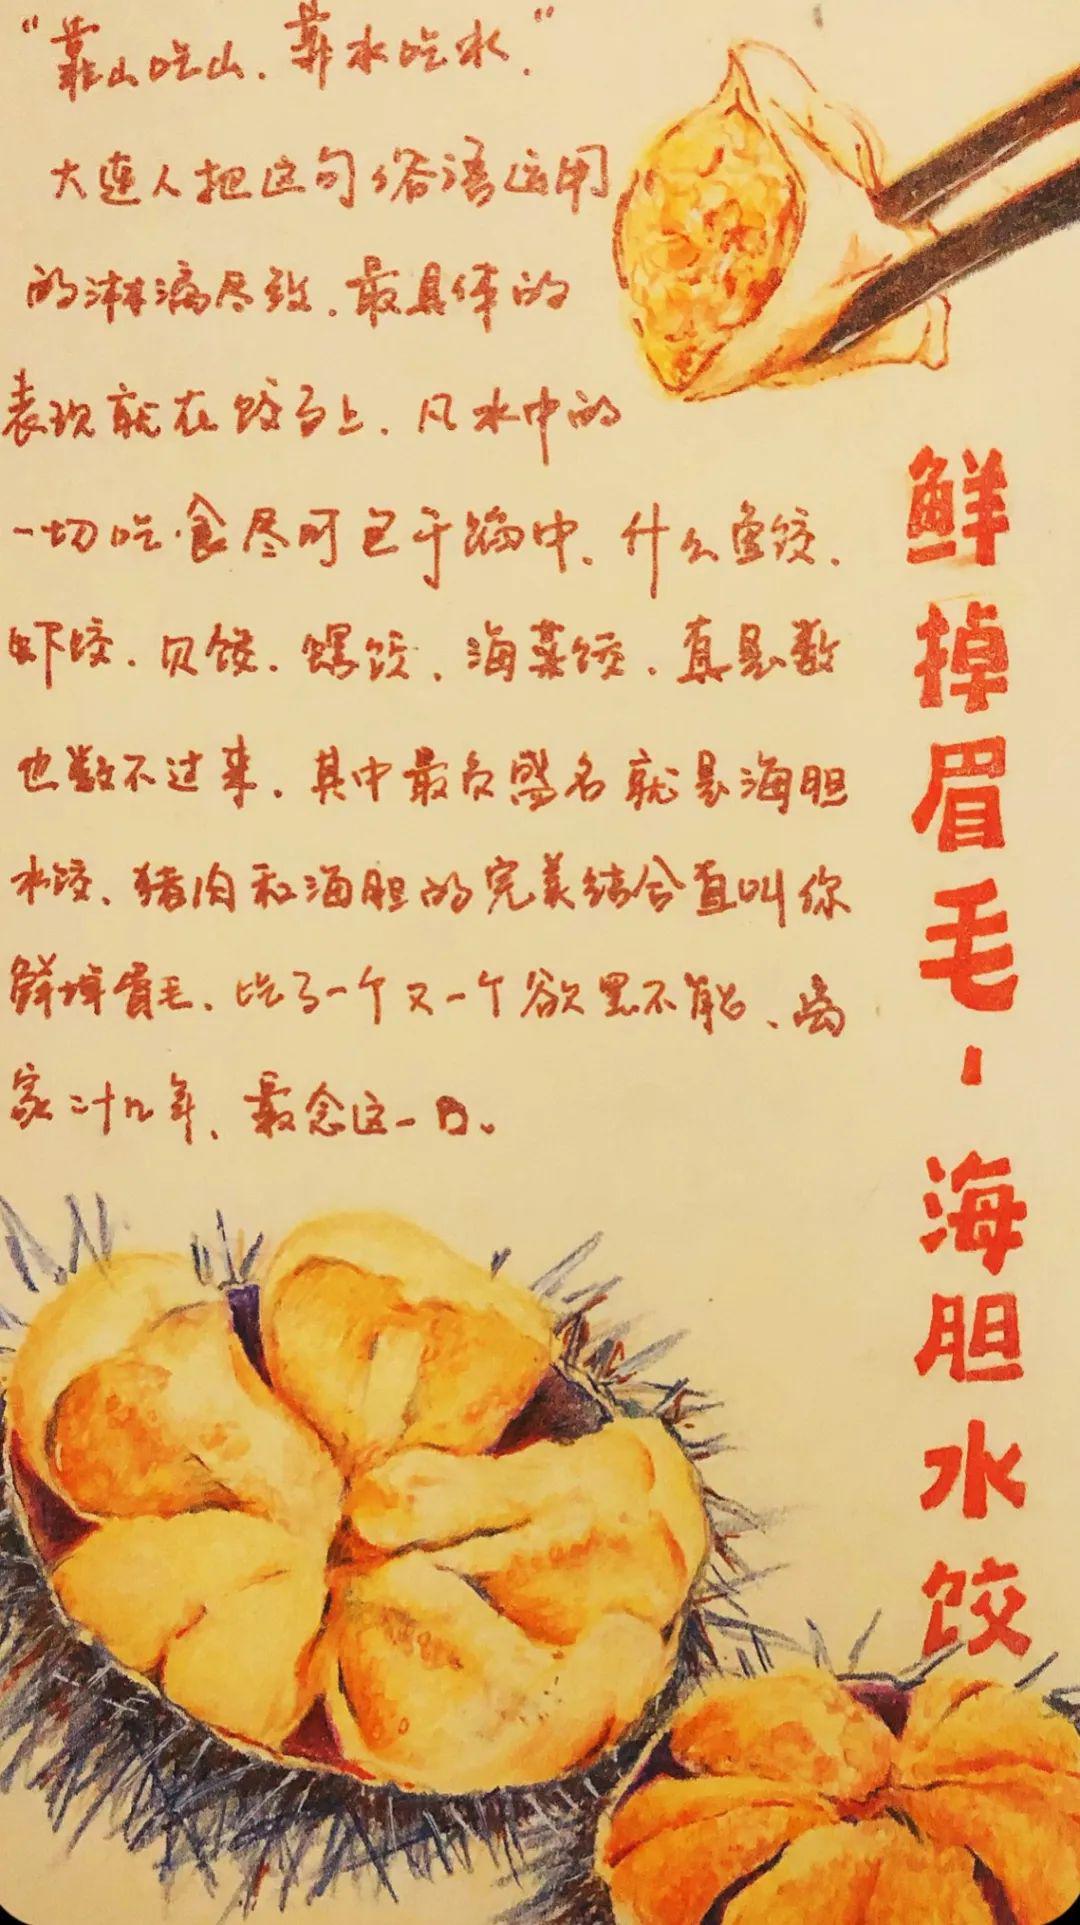 “靠山吃山、靠水吃水”
大连人把这句俗语运用
的淋漓尽致.最具体的
表现就在饺子上.凡水中的
一切吃食尽可包于馅中、什么鱼饺、
虾饺、贝饺、螺饺、海菜饺、真是数
也数不过来.其中最负盛名就是海胆
水饺、猪肉和海胆的完美结合直叫你
鲜掉眉毛、吃了一个又一个欲罢不能、离
家二十几年、最念这一口。
鲜掉眉毛-海胆水饺